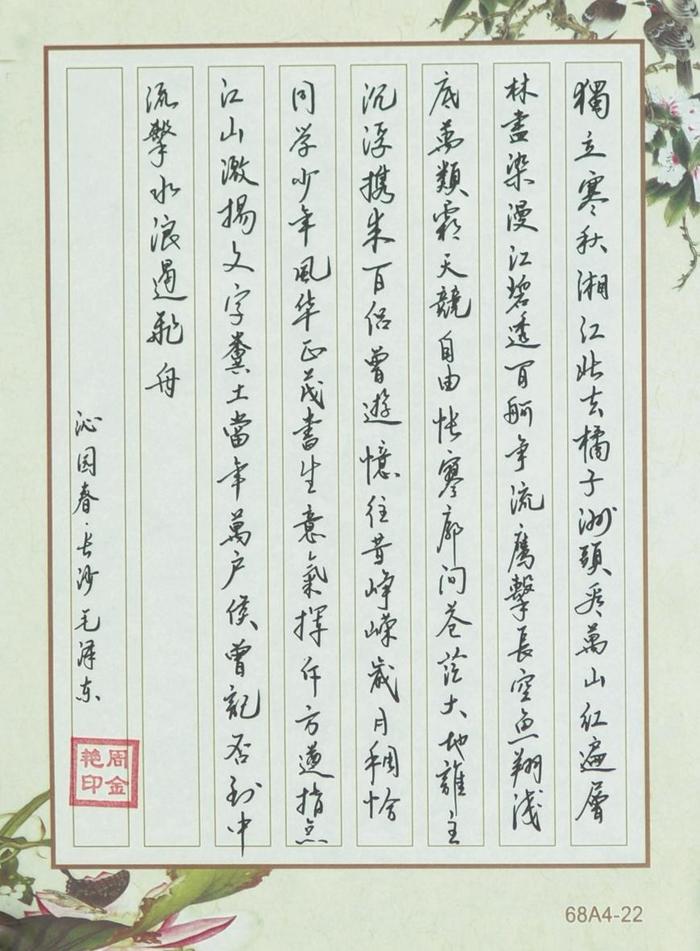 獨立寒秋湘江北去橘子洲頭看萬山红遍層
林盡染漫江碧透百舸争流鷹擊長空魚翔淺
底萬類霜天競自由悵寥廓问苍茫大地誰主
沉浮携来百侣曾遊憶往昔峥嵘歲月稠恰
同学少年風华正茂書生意氣揮斥方遒指点
江山激揚文字糞土當年萬户侯曾記否到中
流擊水浪遏飛舟
沁园春·长沙 毛泽东
周金
艳印
68A4-22